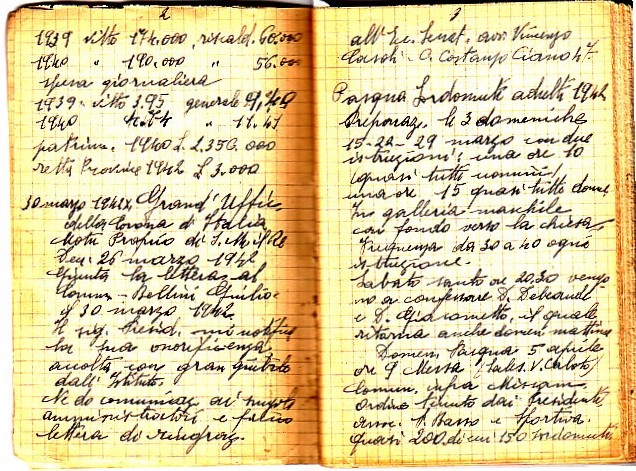 2
1939 vitto 174.000, riscald. 60.000
1940 " 190.000 " 56.000
spesa giornaliera
1939 - vitto 3.95 generale
1940 " 11.47
patrim. 1940 L. 2.350.000
retta Province 1942 £ 3.000
30 marzo 1942 Grand'Uffic
della Corona d'Italia
Motu Proprio di S. M. il Re
26 marzo 1942
Giunta la lettera al
Comm. Bellini Giulio
il 30 marzo 1942
Il sig. Presid. mi notifica
la sua onorificenza
accolta con gran giubilo
dall'Istituto.
Ne do comunicaz. ai singoli
amministratori e faccio
lettera di ringraz.
3
all'Ec. Senat. avv. Vincenzo
Casoli - C. Costanzo Ciano 47
Pasqua Sordomute adulte 1942
Preparaz. le 3 domeniche
15-22-29 marzo con due
istruzioni: una ore 10
(quasi tutti uomini)
una ore 15 quasi tutte donne
In galleria maschile
con fondo verso la chiesa
Frequenza da 30 a 40 ogni
istruzione.
Sabato santo ore 20,30 vengo
no a confessare D.
e D. Giacometto, il quale
ritorna anche domen. mattina
Domen. Pasqua 5 aprile
ore 9 Messa (Sales. V. Carloto)
Comun. infra Missam
ordine tenuto dai Presidenti
Assoc. A. Basso e Sportiva.
Quasi 200 di cui 150 sordomuti